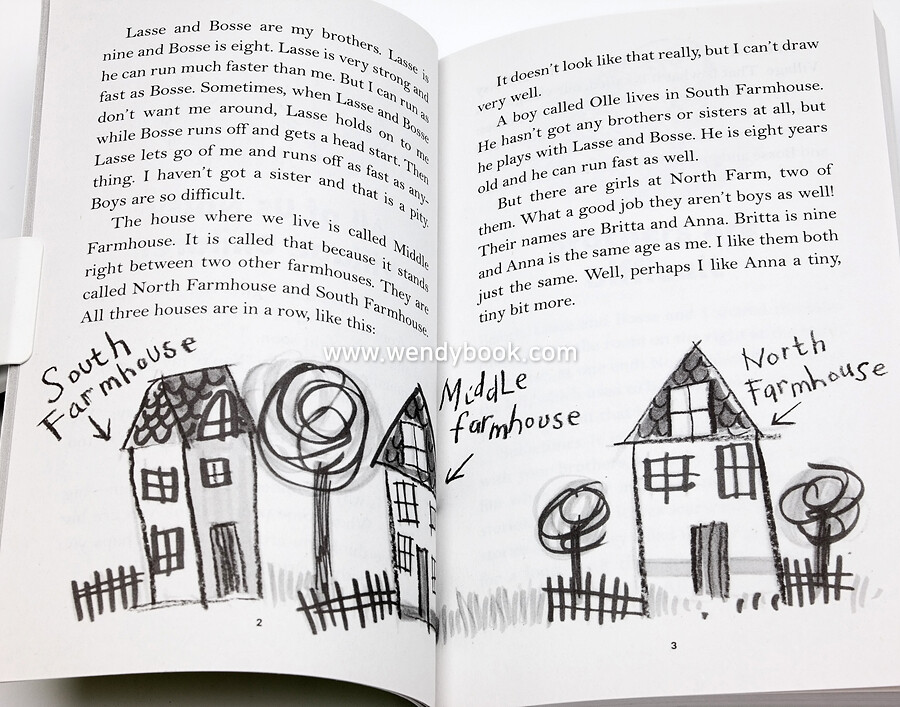 Lasse and Bosse are my brothers. Lasse is
nine and Bosse is eight. Lasse is very strong and
he can run much faster than me. But I can run as
fast as Bosse. Sometimes, when Lasse and Bosse
don't want me around, Lasse holds on to me
while Bosse runs off and gets a head start. Then
Lasse lets go of me and runs off as fast as any-
thing. I haven't got a sister and that is a pity.
Boys are so difficult.
The house where we live is called Middle
Farmhouse. It is called that because it stands
right between two other farmhouses. They are
called North Farmhouse and South Farmhouse.
All three houses are in a row, like this:
South
Farmhouse
2
It doesn't look like that really, but I can't draw
very well.
A boy called Olle lives in South Farmhouse.
He hasn't got any brothers or sisters at all, but
he plays with Lasse and Bosse. He is eight years
old and he can run fast as well.
But there are girls at North Farm, two of
them. What a good job they aren't boys as well!
Their names are Britta and Anna. Britta is nine
and Anna is the same age as me. I like them both
just the same. Well, perhaps I like Anna a tiny,
tiny bit more.
www.wendybook.com
Middle
farmhouse
North
Farmhouse
3